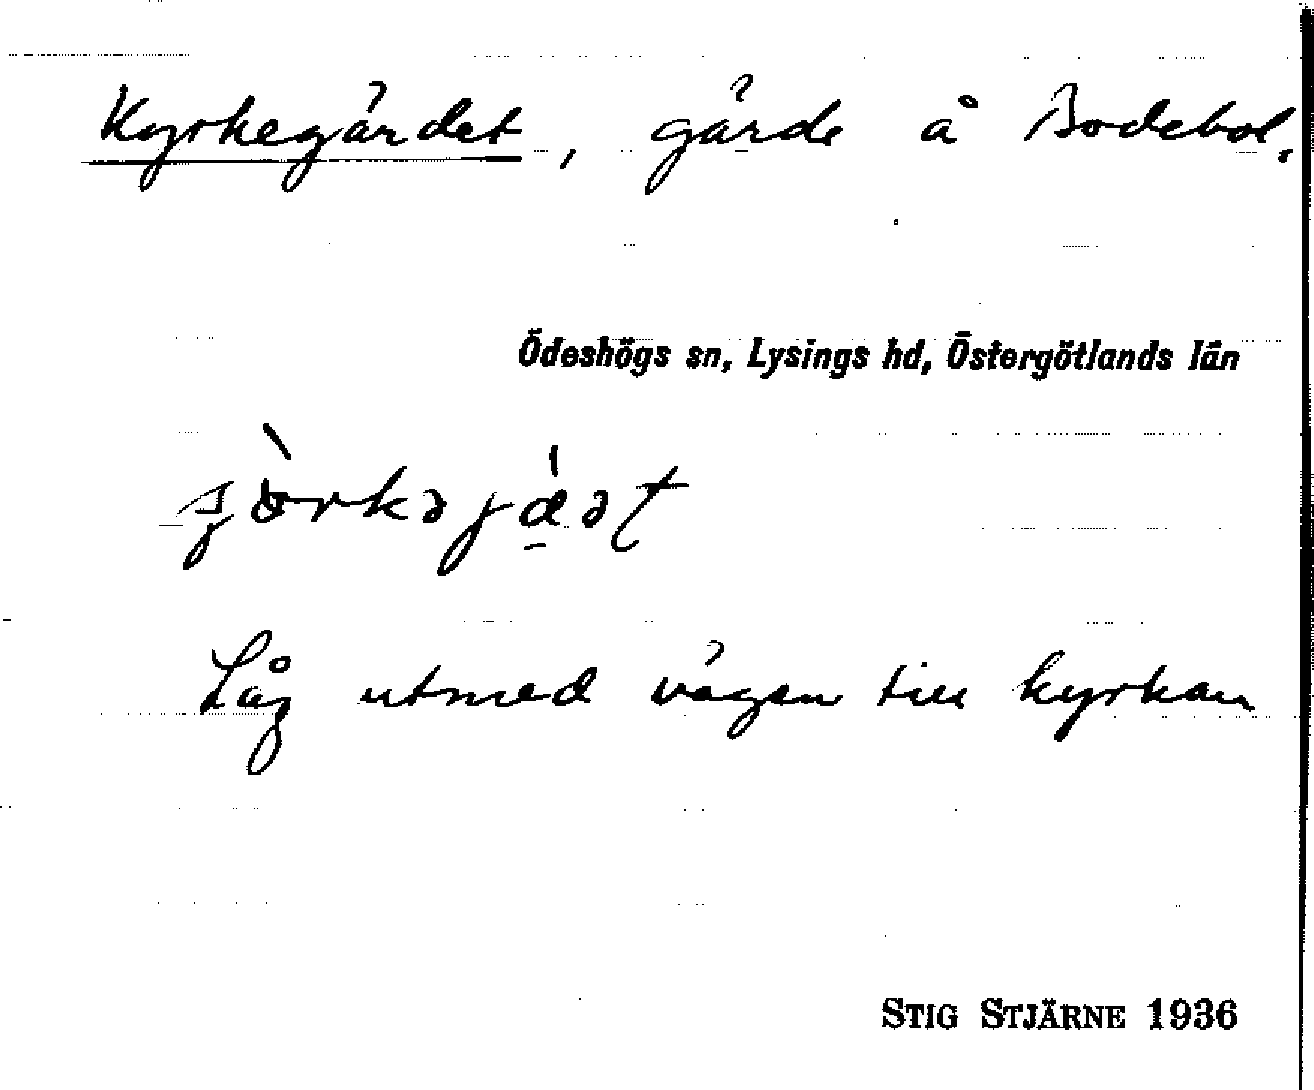 Kyrkegärdet, gärde å Bodebol.
Ödeshögs sn, Lysings hd, Östergötlands län
Låg utmed vägen till kyrkan
STIG STJÄRNE 1936